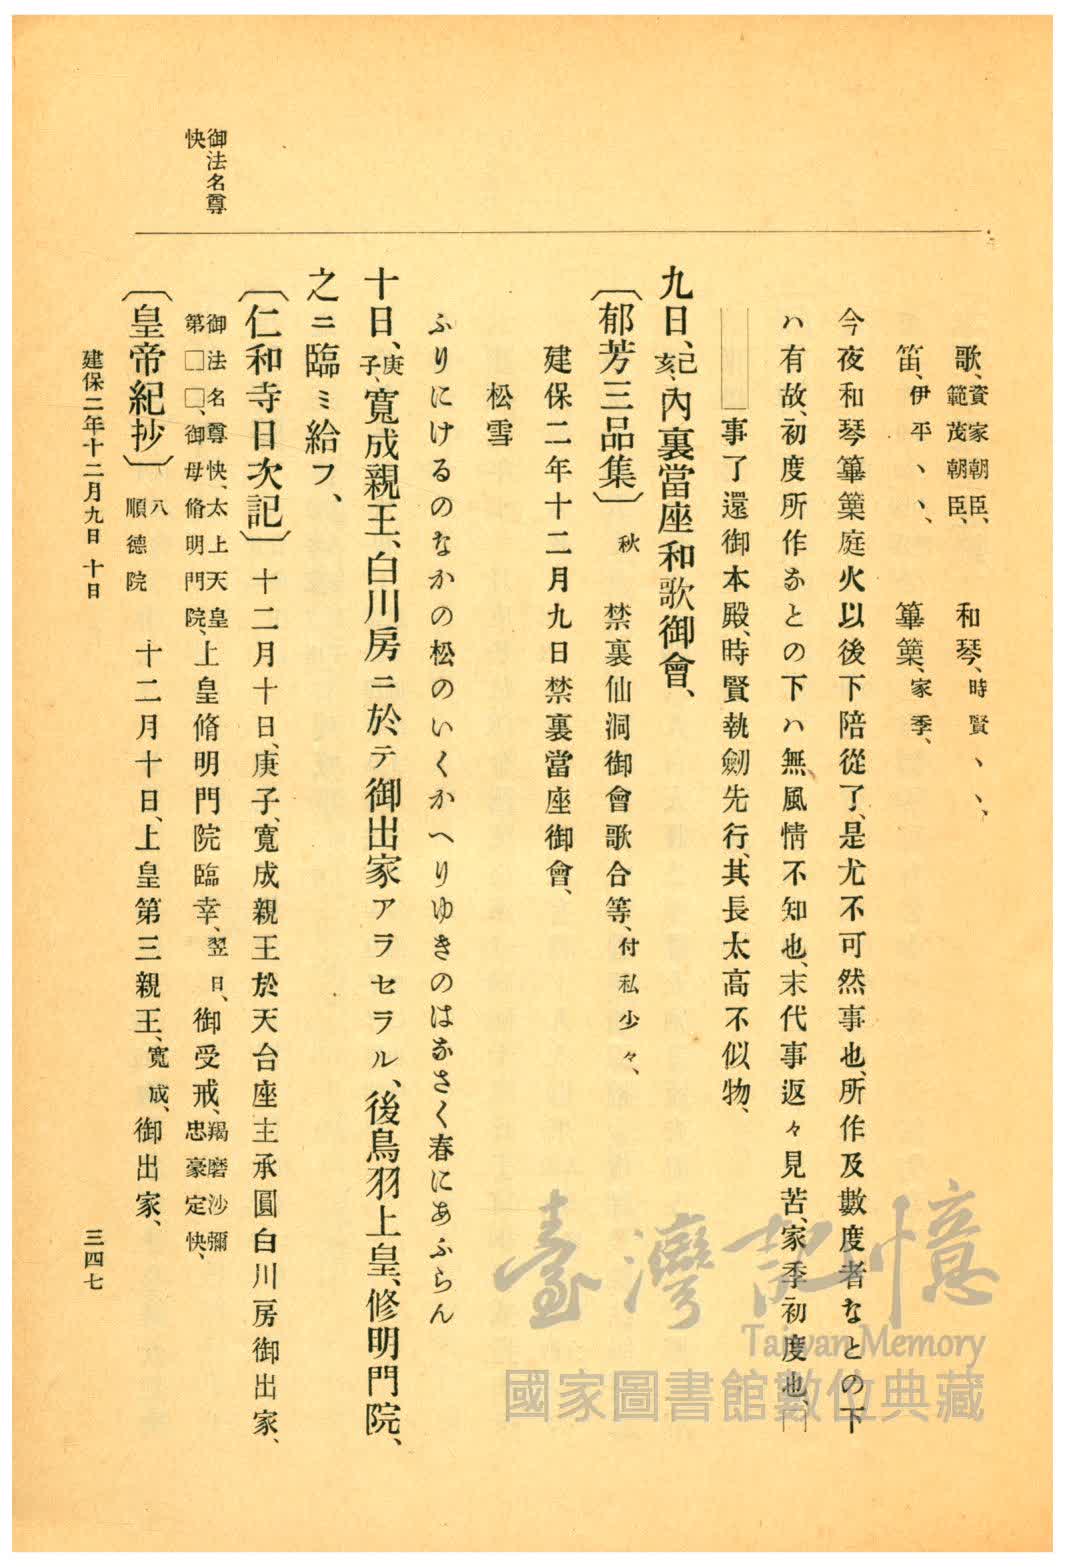 歌、資家朝臣、範茂朝臣、 和琴、時賢、、、
笛、伊平、、、 篳篥、家季、
今夜和琴篳篥庭火以後下陪從了、是尤不可然事也、所作及數度者なとの下
ハ有故、初度所作なとの下ハ無風情不知也、末代事返々見苦、家季初度也、□
□□事了還御本殿、時賢執劒先行、其長太高不似物、
九日、己亥、內裏當座和歌御會、
〔郁芳三品集〕 秋 禁裏仙洞御會歌合等、付私少々、
建保二年十二月九日禁裏當座御會、
松雪
ふりにけるのなかの松のいくかへりゆきのはなさく春にあふらん
十日、庚子、寬成親王、白川房ニ於テ御出家アラセラル、後鳥羽上皇、修明門院、
之ニ臨ミ給フ、
〔仁和寺日次記〕 十二月十日、庚子、寬成親王於天台座主承圓白川房御出家、
御法名尊快、太上天皇第□□、御母脩明門院、上皇脩明門院臨幸、翌日、御受戒、羯磨沙彌忠豪定快、
〔皇帝紀抄〕 八 順德院 十二月十日、上皇第三親王、寬成、御出家、
御法名尊快
建保二年十二月九日 十日
三四七
臺灣記憶
Taiwan Memory
國家圖書館數位典藏